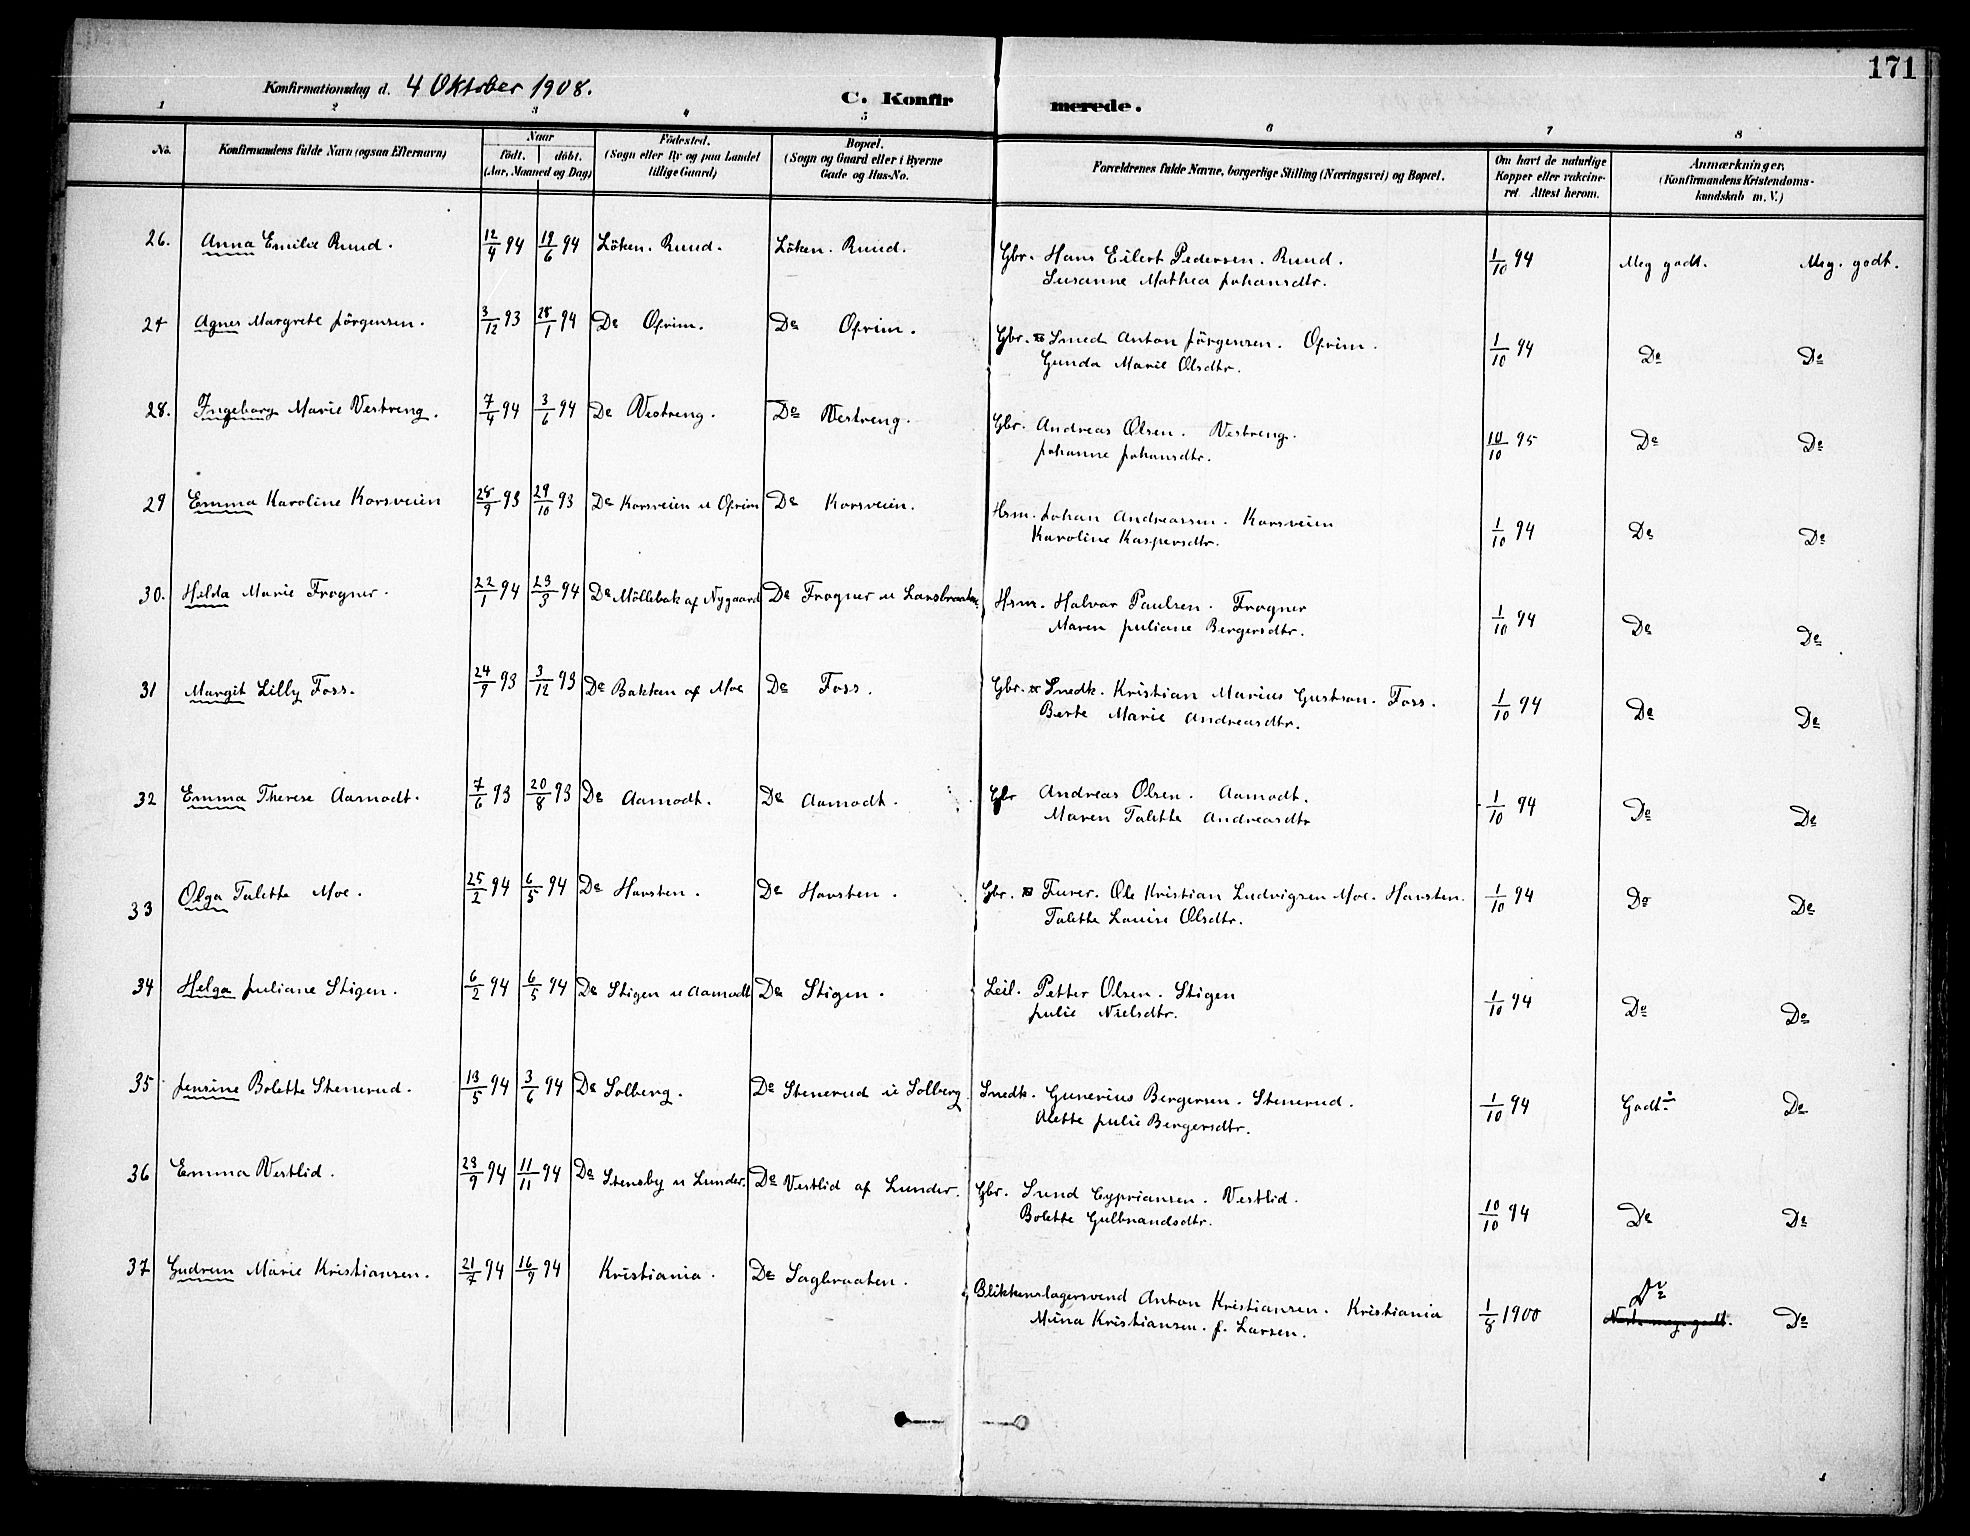 171
Konfirmationsdag d. 4 Oktober 1908.
C. Konfir merede.
1 2 3 4 5 6 7 8
No. Konfirmandens fulde Navn (ogsaa Efternavn) Naar Födested. Bopæl. Forældrenes fulde Navne, borgerlige Stilling (Næringsvei) og Bopæl. Om havt de naturlige Anmærkninger,
födt. döbt. (Sogn eller By og paa Landet (Sogn og Gaard eller i Byerne Kopper eller vakcine- (Konfirmandens Kristendoms-
(Aar, Maaned og Dag) tillige Gaard) Gade og Hus-No. ret Attest herom. kundskab m. V.)
26. Anna Emilie Ruud. 12/4 94 19/6 94 Löken. Ruud. Löken. Ruud. Gbr. Hans Eilert Pedersen. Ruud. 1/10 94 Meg godt. Meg. godt.
Susanne Mathea Johansdtr.
27 Agnes Margrete Jörgensen. 3/12 93 28/1 94 Do Ofrim. Do Ofrim. Gbr. & Smed Anton Jörgensen. Ofrim. 1/10 94 Do Do
Gunda Marie Olsdtr.
28. Ingeborg Marie Vestreng. 7/4 94 3/6 94 Do Vestreng. Do Vestreng. Gbr. Andreas Olsen. Vestreng. 10/10 95 Do Do
Johanne Johansdtr.
29 Emma Karoline Korsveien 28/9 93 29/10 93 Do Korsveien u Ofrim Do Korsveien. Hsm. Johan Andreassen. Korsveien 1/10 94 Do Do
Karoline Kaspersdtr.
30. Hilda Marie Frogner. 22/1 94 23/3 94 Do Möllebak af Nygaard Do Frogner u Larsbraaten. Hsm. Halvor Paulsen. Frogner 1/10 94 Do Do
Maren Juliane Bergersdtr.
31 Margit Lilly Foss. 24/9 93 3/12 93 Do Bakken af Moe Do Foss. Gbr. & Snedk. Kristian Marius Gustson. Foss. 1/10 94 Do Do
Berte Marie Andreasdtr.
32 Emma Therese Aamodt. 7/6 93 20/8 93 Do Aamodt. Do Aamodt. Gbr Andreas Olsen. Aamodt. 1/10 94 Do Do
Maren Talette Andreasdtr
33 Olga Talette Moe. 25/2 94 6/5 94 Do Havsten. Do Havsten. Gbr. & Furer. Ole Kristian Ludvigsen Moe. Havsten. 1/10 94 Do Do
Talette Louise Olsdtr.
34 Helga Juliane Stigen. 6/2 94 6/5 94 Do Stigen u Aamodt Do Stigen. Leil. Petter Olsen. Stigen 1/10 94 Do Do
Julie Nielsdtr.
35 Jensine Bolette Stenerud. 13/5 94 3/6 94 Do Solberg. Do Stenerud u Solberg. Snedk. Gunerius Bergersen. Stenerud. 1/10 94 Godt. Do
Alette Julie Bergersdtr.
36 Emma Vestlid. 23/9 94 11/11 94 Do Stensby u Lunder. Do Vestlid af Lunder. Gbr. Svend Cypriansen. Vestlid. 10/10 94 Do Do
Bolette Gulbrandsdtr.
37 Gudrun Marie Kristiansen. 21/7 94 16/9 94 Kristiania. Do Sagbraaten. Blikkenslagersvend Anton Kristiansen. Kristiania 1/8 1900 Do Do
Mina Kristiansen. f. Larsen.